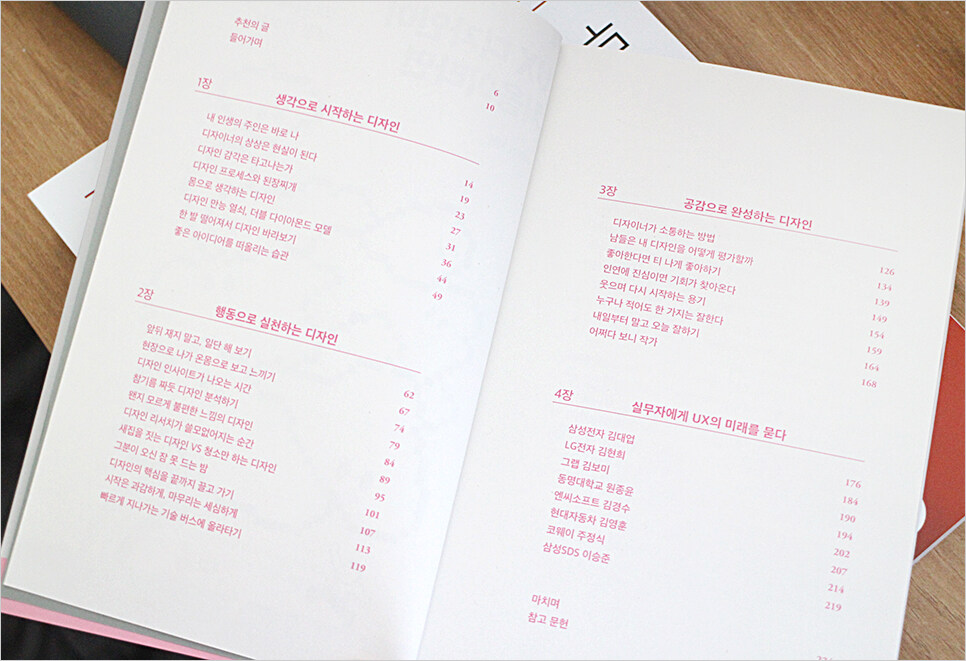 추천의 글 6
들어가며 10
1장 생각으로 시작하는 디자인
내 인생의 주인은 바로 나 14
디자이너의 상상은 현실이 된다 19
디자인 감각은 타고나는가 23
디자인 프로세스와 된장찌개 27
몸으로 생각하는 디자인 31
디자인 만능 열쇠, 더블 다이아몬드 모델 36
한 발 떨어져서 디자인 바라보기 44
좋은 아이디어를 떠올리는 습관 49
2장 행동으로 실천하는 디자인
앞뒤 재지 말고, 일단 해 보기 62
현장으로 나가 온몸으로 보고 느끼기 67
디자인 인사이트가 나오는 시간 74
참기름 짜듯 디자인 분석하기 79
왠지 모르게 불편한 느낌의 디자인 84
디자인 리서치가 쓸모없어지는 순간 89
새집을 짓는 디자인 VS 청소만 하는 디자인 95
그분이 오신 잠 못 드는 밤 101
디자인의 핵심을 끝까지 끌고 가기 107
시작은 과감하게, 마무리는 세심하게 113
빠르게 지나가는 기술 버스에 올라타기 119
3장 공감으로 완성하는 디자인
디자이너가 소통하는 방법 126
남들은 내 디자인을 어떻게 평가할까 134
좋아한다면 티 나게 좋아하기 139
인연에 진심이면 기회가 찾아온다 149
웃으며 다시 시작하는 용기 154
누구나 적어도 한 가지는 잘한다 159
내일부터 말고 오늘 잘하기 164
어쩌다 보니 작가 168
4장 실무자에게 UX의 미래를 묻다
삼성전자 김대업 176
LG전자 김현희 184
그랩 김보미 190
동명대학교 원종윤 194
엔씨소프트 김경수 202
현대자동차 김영훈 207
코웨이 주정식 214
삼성SDS 이승준 219
마치며
참고 문헌